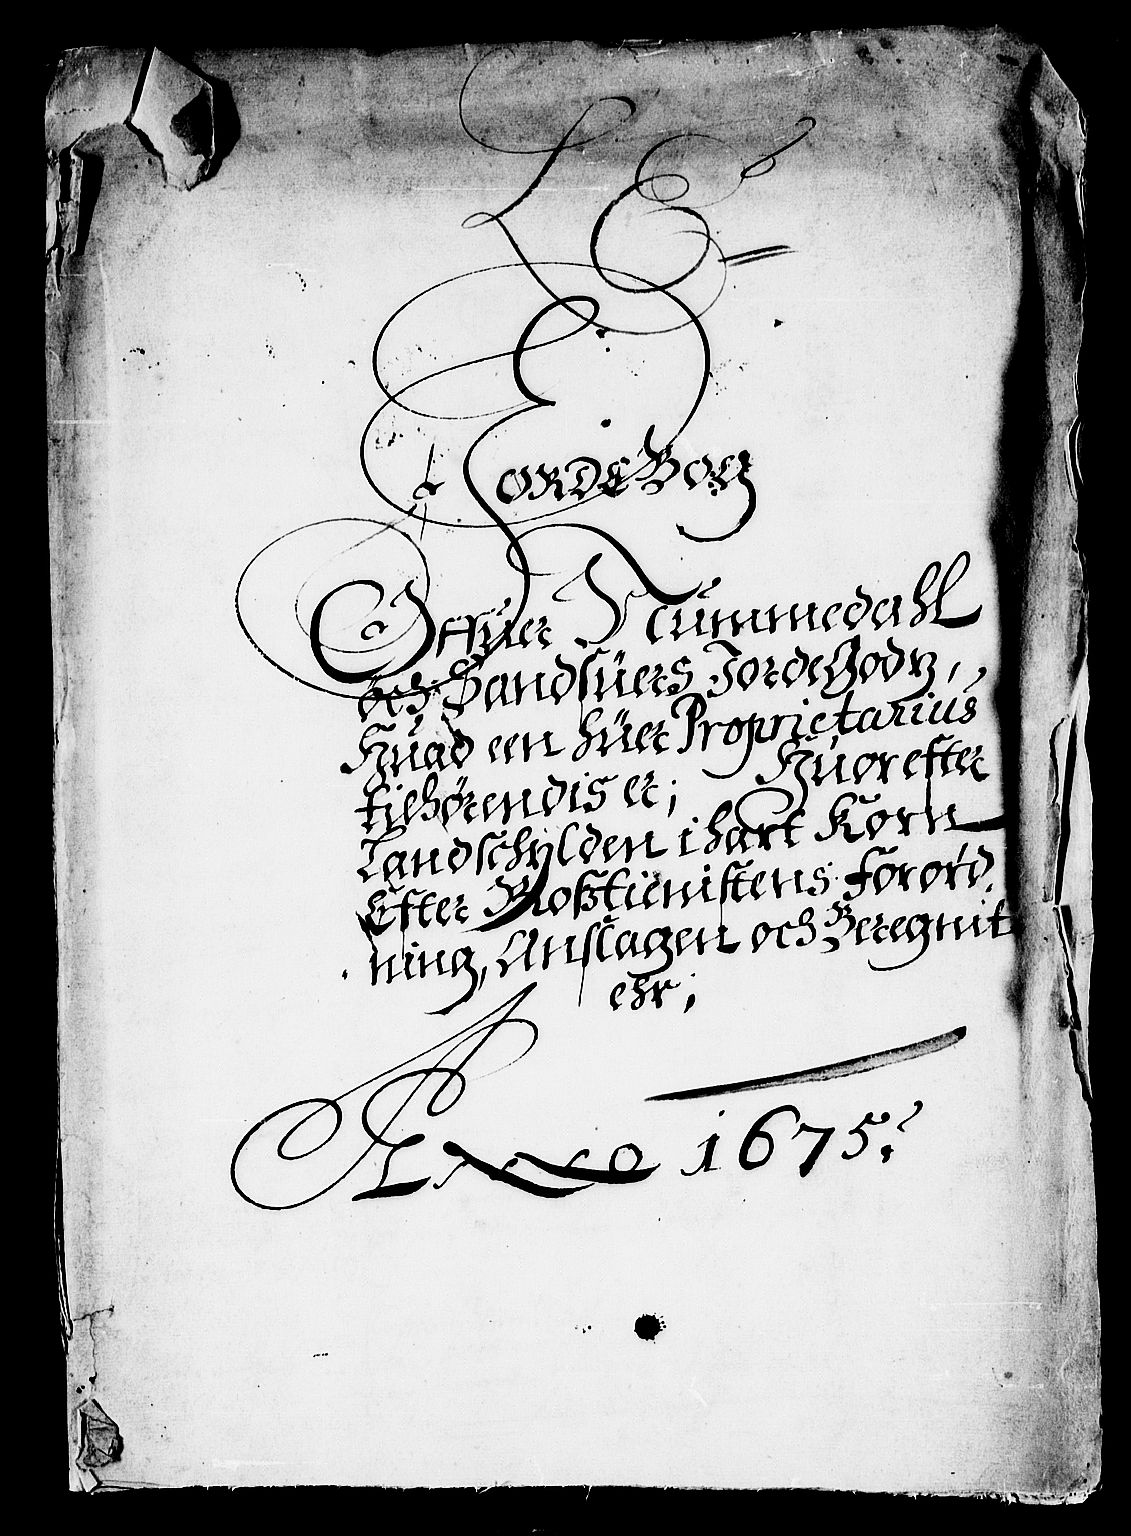 L E
JordeBog
Offuer Nummedahl
och Sandsüers Jordegodtz,
Huad een huer Proprietarius
tilhørendis er; Huor efter
Landschylden i hart Korn
Efter Rosztienistens forord.
ning, Anslagen och Beregnit
ehr;
Anno 1675.